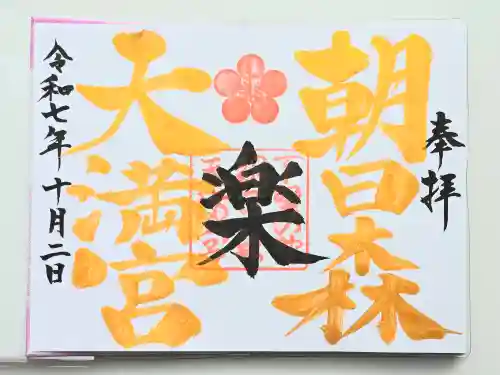 奉拝
朝日森
楽
天満宮
令和七年十月二日